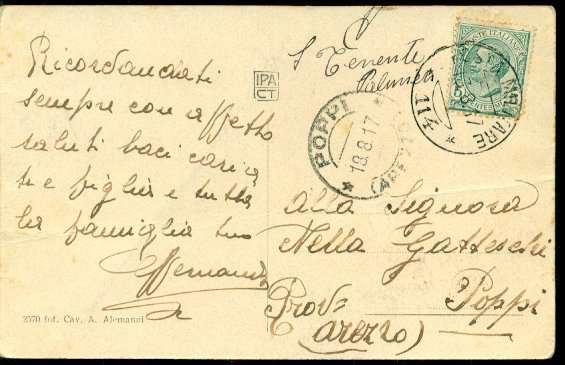 Ricordandoti
sempre con affetto
saluti baci cari a
te e figlia e tutta
la famiglia tuo
2570 fot. Cav. A. Alemanni
IPA
CT
S. Tenente
POPPI
18.8.17
(AREZZO)
POSTA MILITARE
114
Alla Signora
Nella Gatteschi
Poppi
Prov=
(Arezzo)